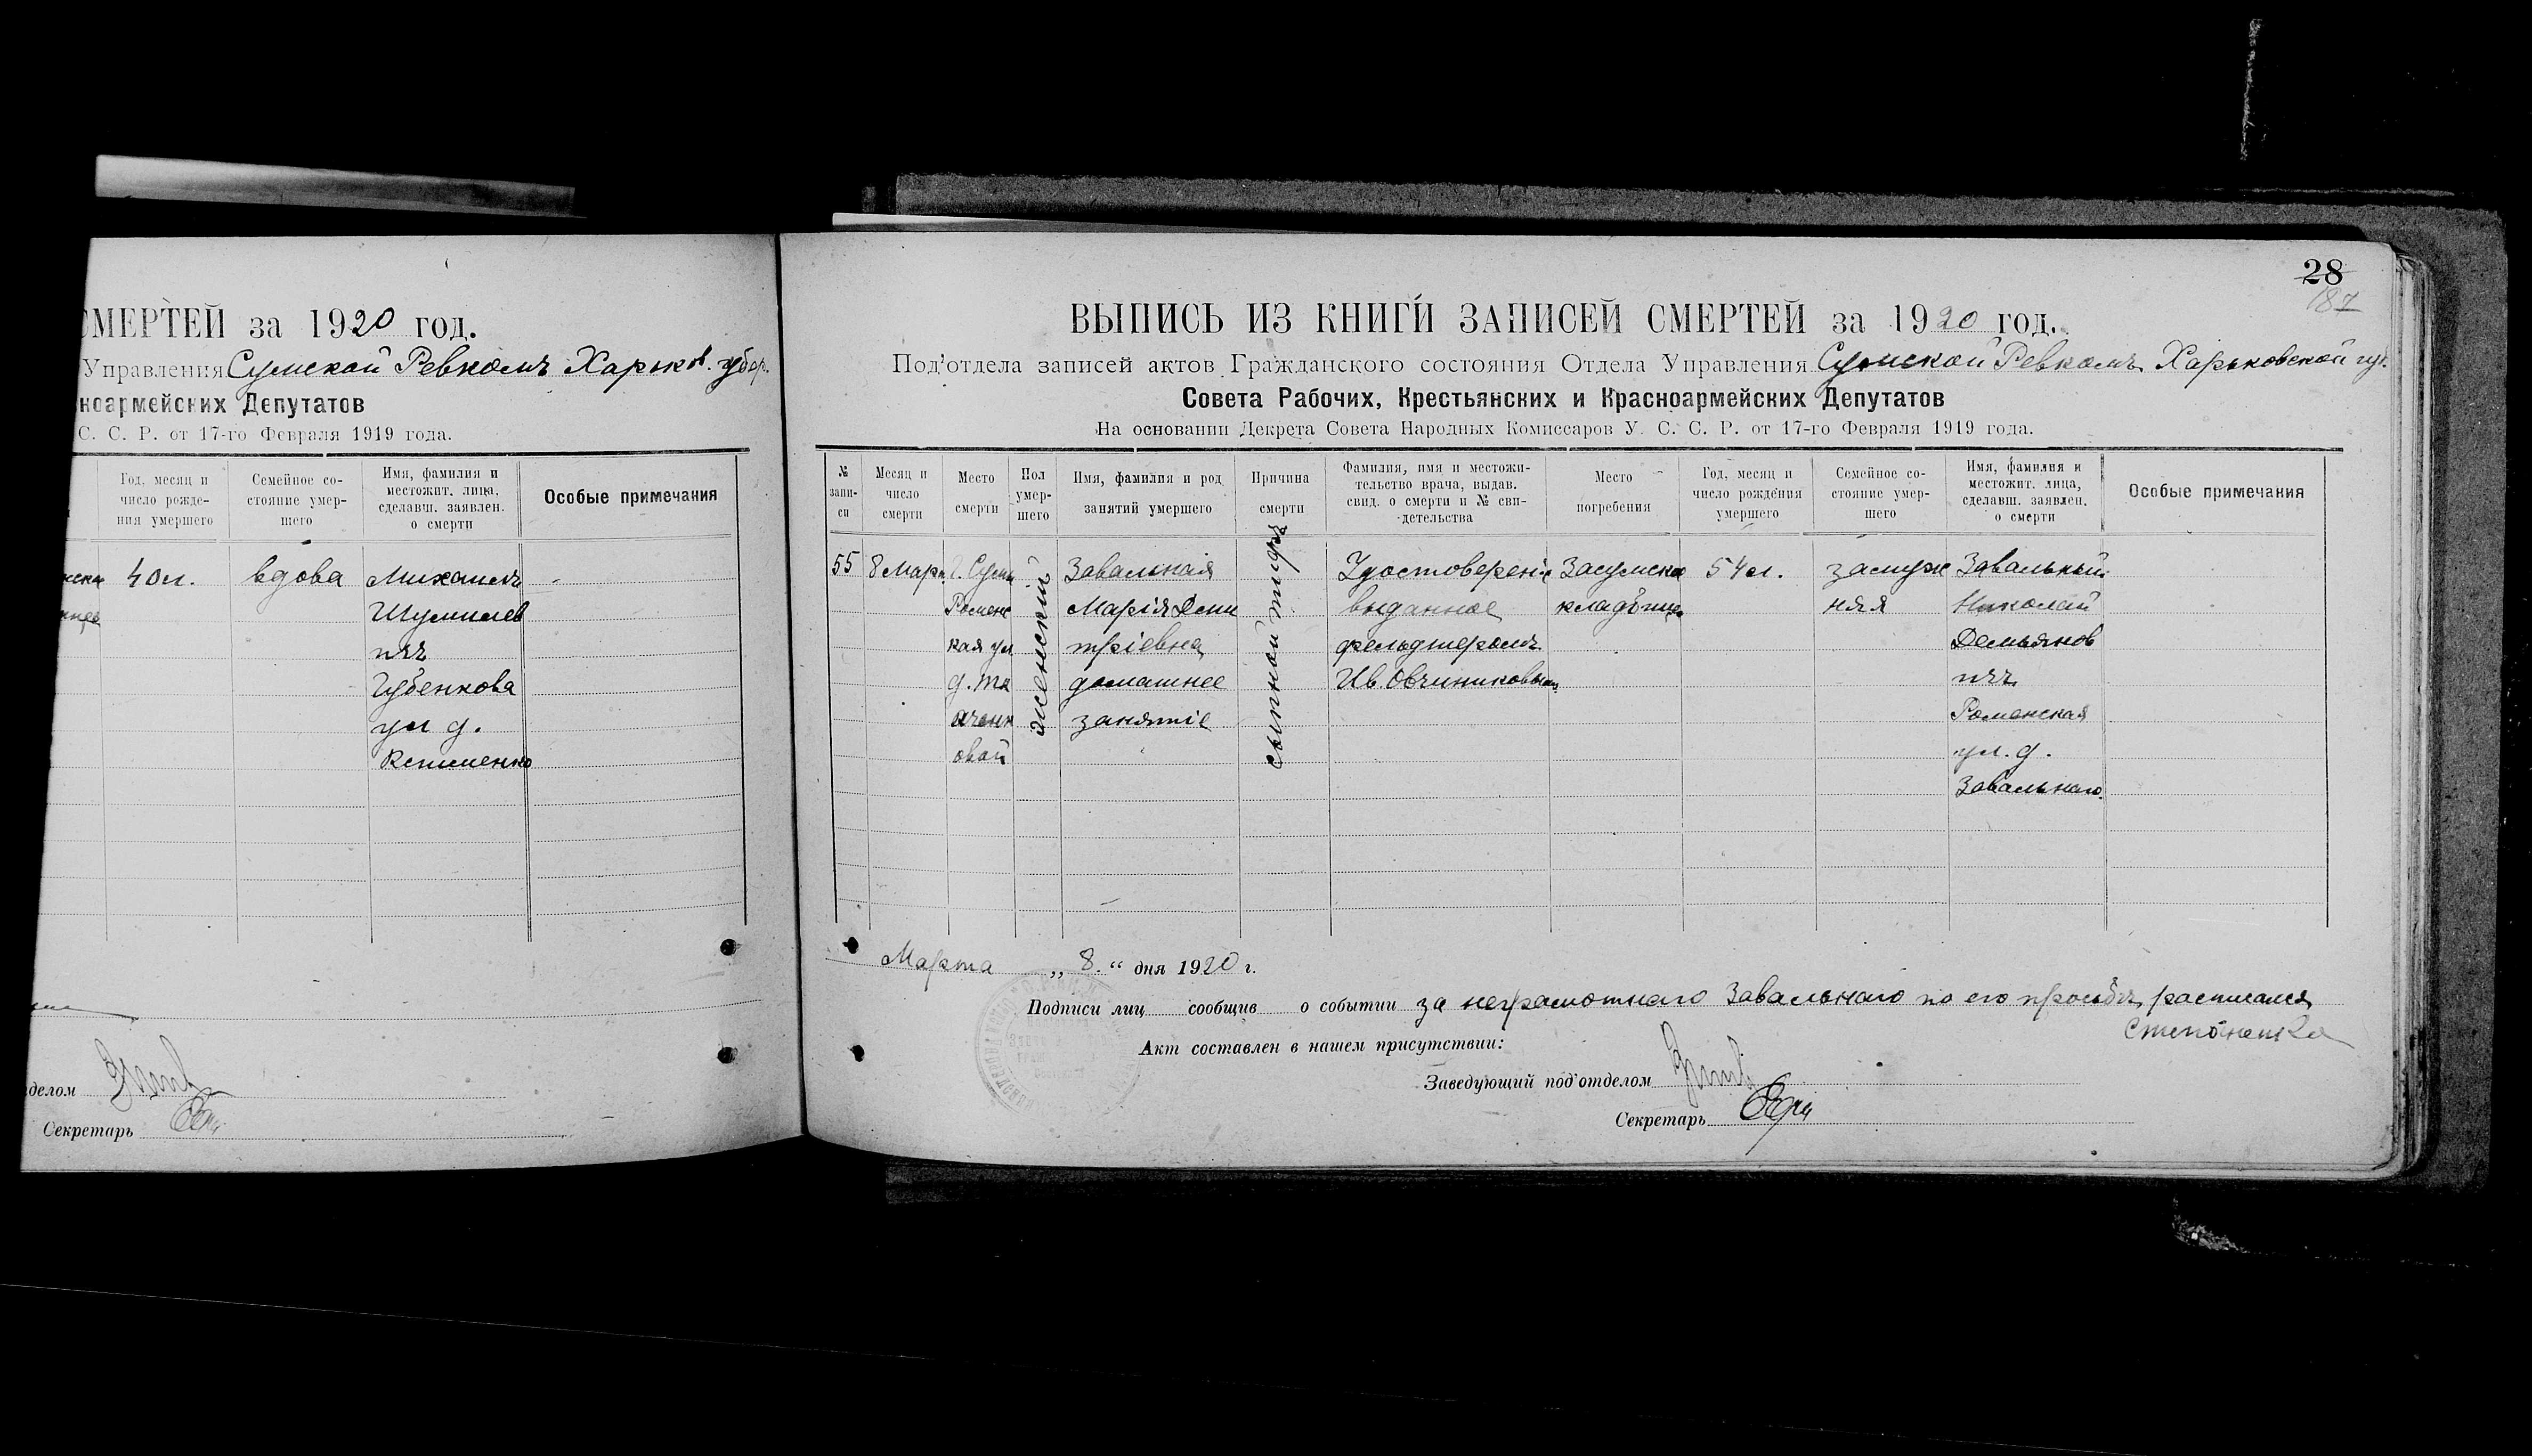 СМЕРТЕЙ за 1920 год.
Управления Сумской Ревкомъ Харьков. губер.
ноармейских Депутатов
С. С. Р. от 17-го Февраля 1919 года.
Год, месяц и
число рожде-
ния умершего
Семейное со-
стояние умер-
шего
Имя, фамилия и
местожит. лица,
сделавш. заявлен.
о смерти
Особые примечания
40 л.
вдова
Михаилъ
Шумилев
ичъ
Губенкова
ул д.
отделом
Секретарь
28
187
ВЫПИСЬ ИЗ КНИГИ ЗАПИСЕЙ СМЕРТЕЙ за 1920 год.
Под'отдела записей актов Гражданского состояния Отдела Управления Сумской Ревкомъ Харьковской гу.
Совета Рабочих, Крестьянских и Красноармейских Депутатов
На основании Декрета Совета Народных Комиссаров У. С. С. Р. от 17-го Февраля 1919 года.
№
запи-
си
Месяц и
число
смерти
Место
смерти
Пол
умер-
шего
Имя, фамилия и род
занятий умершего
Причина
смерти
Фамилия, имя и местожи-
тельство врача, выдав.
свид. о смерти и № сви-
детельства
Место
погребения
Год, месяц и
число рождения
умершего
Семейное со-
стояние умер-
шего
Имя, фамилия и
местожит. лица,
сделавш. заявлен.
о смерти
Особые примечания
55
8 Март
г. Сумы
Роменс
кая ул
д. Тк
аченк
овой
женский
Завальная
Марія Дми
тріевна
домашнее
занятіе
сыпной тифъ
Удостоверение
выданное
фельдшеромъ
Ив. Овчиниковым
Засумское
кладбище
54 л.
замуж
няя
Завальный
Николай
Демьянов
ичъ
Роменская
ул. д.
Завальнаго
Марта „ 8. “ дня 1920 г.
Подписи лиц сообщив о событии за неграмотнаго Завальнаго по его просьбѣ расписался
Акт составлен в нашем присутствии:
Заведующий под'отделом
Секретарь